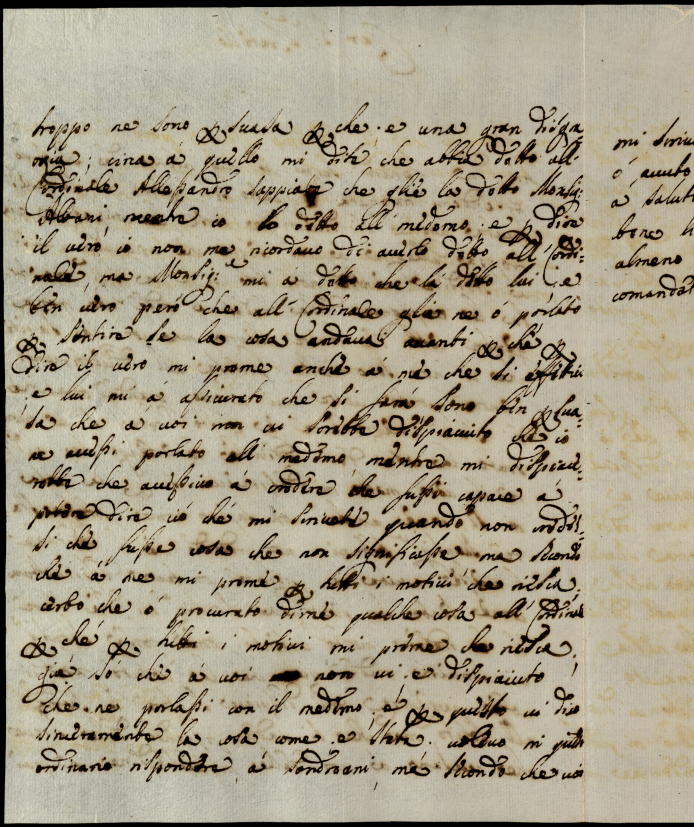 troppo ne sono p suasa p che e una gran disgra
cinca á quello mi dite che abbia detto all
Cordinale Allessandro sappiate che glie la detto Monsig:
Albani mentre io lo detto all medemo e p dire
il vero io non me ricordavo di averlo detto all Cordi-
nale, ma Monsig:e mi á detto che lá detto lui e
ben vero peró che all Cordinale glie ne ó porlato
p sentire se la cosa andava avanti p che p
dire il vero mi prome anche á me che si
e lui mi á assicurato che si fara sono ben p sua-
sa che á voi non vi sarebbe dispiaciuto che io
ne avessi porlato all medemo mentre mi dispiace-
rebbe che avessivo a credere che fussi capace á
potere dire ció ché mi scrivete quando non credes-
si che fusse cosa che non significasse ma secondo
che á me mi prome p tutti i motivi che riesca,
certo che ó procurato dirne qualche cosa all Cordinale
p ché p tutti i motivi mi preme che riesca,
giá só che á voi non vi e dispiaciuto
che ne porlassi con il medemo e p questo vi dico
sinceramente la cosa come e stata volevo mi questo
ordinario rispondere á Sandroani má secondo che voi
mi scriv
ó avuto
á salut
bene
almeno
comandat